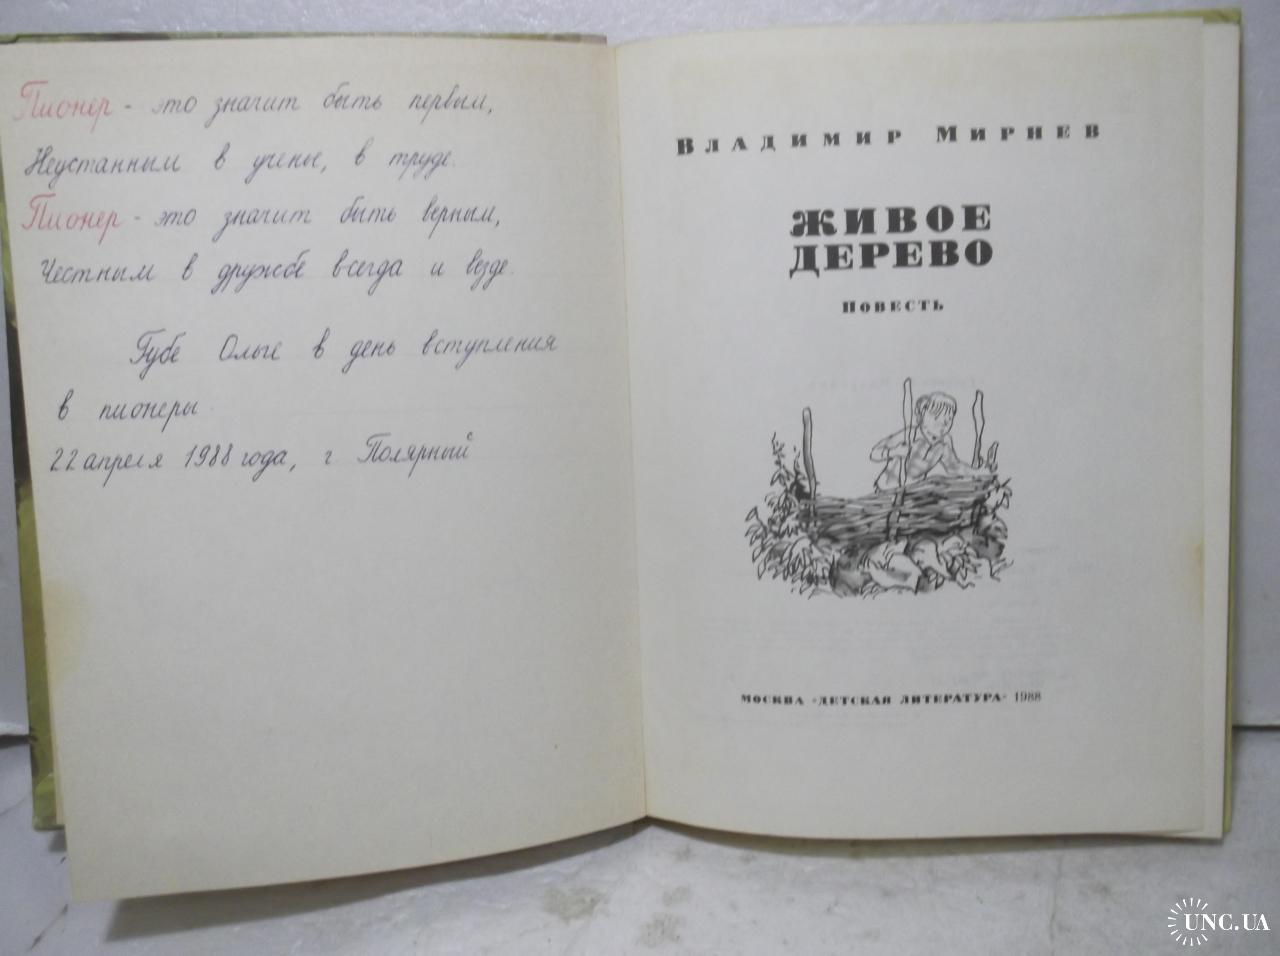 Пионер - это значит быть первым,
Неустанным в ученье, в труде.
Пионер - это значит быть верным,
Честным в дружбе всегда и везде.
Губе Ольге в день вступления
в пионеры.
22 апреля 1988 года, г. Полярный
ВЛАДИМИР МИРНЕВ
ЖИВОЕ
ДЕРЕВО
ПОВЕСТЬ
МОСКВА «ДЕТСКАЯ ЛИТЕРАТУРА» 1988
UNC.UA